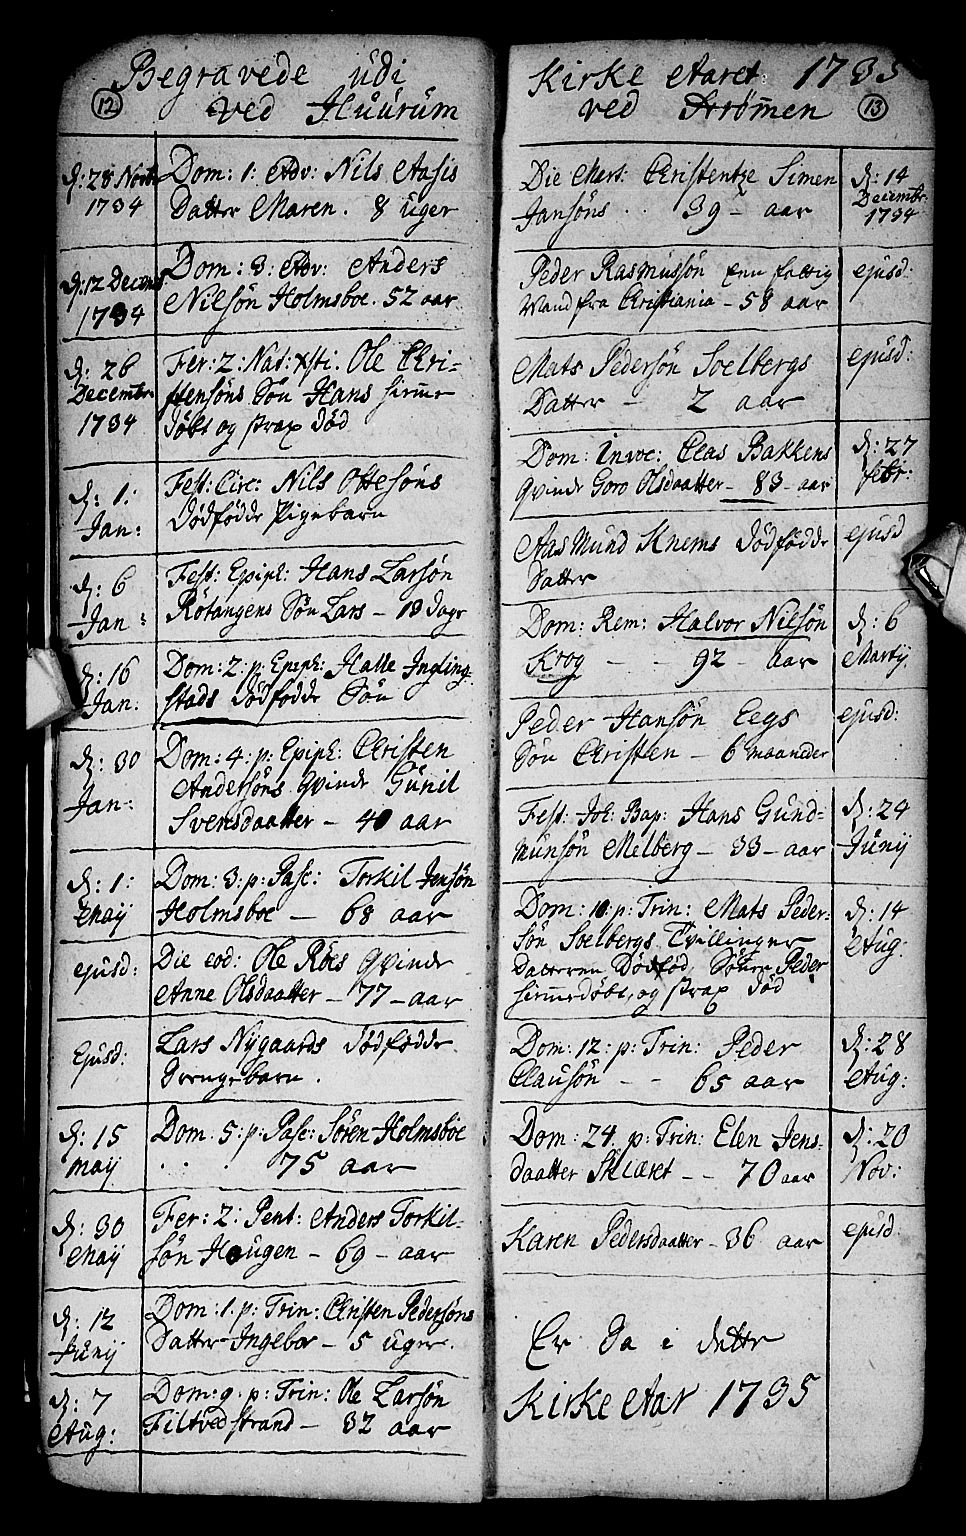 Begravede udi
12 ved Huurum
d: 28 Novbr 1734
Dom: 1: Adv: Nils Aasis
Datter Maren. 8 uger
d: 12 Decemb 1734
Dom: 3: Adv: Anders
Nilsøn Holmsboe. 52 aar
d: 26 Decembr 1734
Fer: 2: Nat: Xsti. Ole Chri-
stensøns Søn Hans hiemme
døbt og strax død
d: 1: Jan:
Fest: Circ: Nils Ottesøns
dødfødde Pigebarn
d: 6 Jan:
Fest: Epiph: Hans Larsøn
Røtangens Søn Lars - 19 dage
d: 16 Jan:
Dom: 2: p: Epiph: Halle Ingling-
stads dødfødde Søn
d: 30 Jan:
Dom: 4: p: Epiph: Christen
Andersøns Qvinde Gunil
Svensdaatter - 40 aar
d: 1: Maij
Dom: 3: p: Pasc: Torkil Jensøn
Holmsboe - 68 aar
ejusd:
Die eod: Ole Røes Qvinde
Anne Olsdaatter - 77 - aar
Ejusd:
Lars Nygaards dødfødde
Drengebarn.
d: 15 May
Dom: 5: p: Pasc: Søren Holmsboe
75 aar
d: 30 Maij
Fer: 2: Pent: Anders Torkil-
søn Haugen - 69 - aar
d: 12 Junij
Dom: 1. p: Trin: Christen Pedersøns
Datter Ingebor - 5 uger.
d: 7 Aug:
Dom: 9. p: Trin: Ole Larsøn
Filtvedstrand - 32 aar
Kirke Aaret 1735
ved Strømen 13
Die Mart: Christentze Simen
Jansøns . . 39 - aar
d: 14 Decembr. 1734
Peder Rasmusøn Enn fattig
Mand fra Christiania - 58 aar
ejusd:
Mats Pedersøn Soelbergs
Datter - 2 aar
ejusd:
Dom: Invoc: Claas Bakkens
Qvinde Goro Olsdaatter - 83 - aar
d: 27 febr:
Aasmund Knems dødfødde
Datter
ejusd
Dom: Rem: Halvor Nilsøn
Krog - - 92 - aar
d: 6 Martij
Peder Hansøn Eegs
Søn Christen - 6 maaneder
ejusd:
Fest: Joh: Bap: Hans Gund-
munsøn Melberg - 33 - aar
d: 24 Junij
Dom: 10: p: Trin: Mats Peder-
søn Soelbergs Tvillinger
Datteren Dødfød, Sønen Peder
hiemedøbt, og strax død
d: 14 Aug:
Dom: 12: p: Trin: Peder
Clausøn - - 65 aar
d: 28 Aug:
Dom: 24 p: Trin: Elen Jens-
daatter Sklæret - - 70 aar
d: 20 Nov:
Karen Pedersdaatter - 36 aar
ejusd:
Er da i dette
Kirke Aar 1735